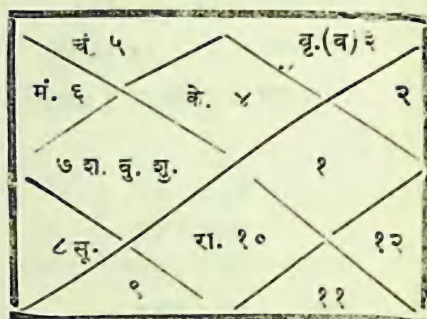 चं. ५ बृ.(व) ३
मं. ६ के. ४ २
७ श. बु. शु. १
८ सू. रा. १० १२
९ ११